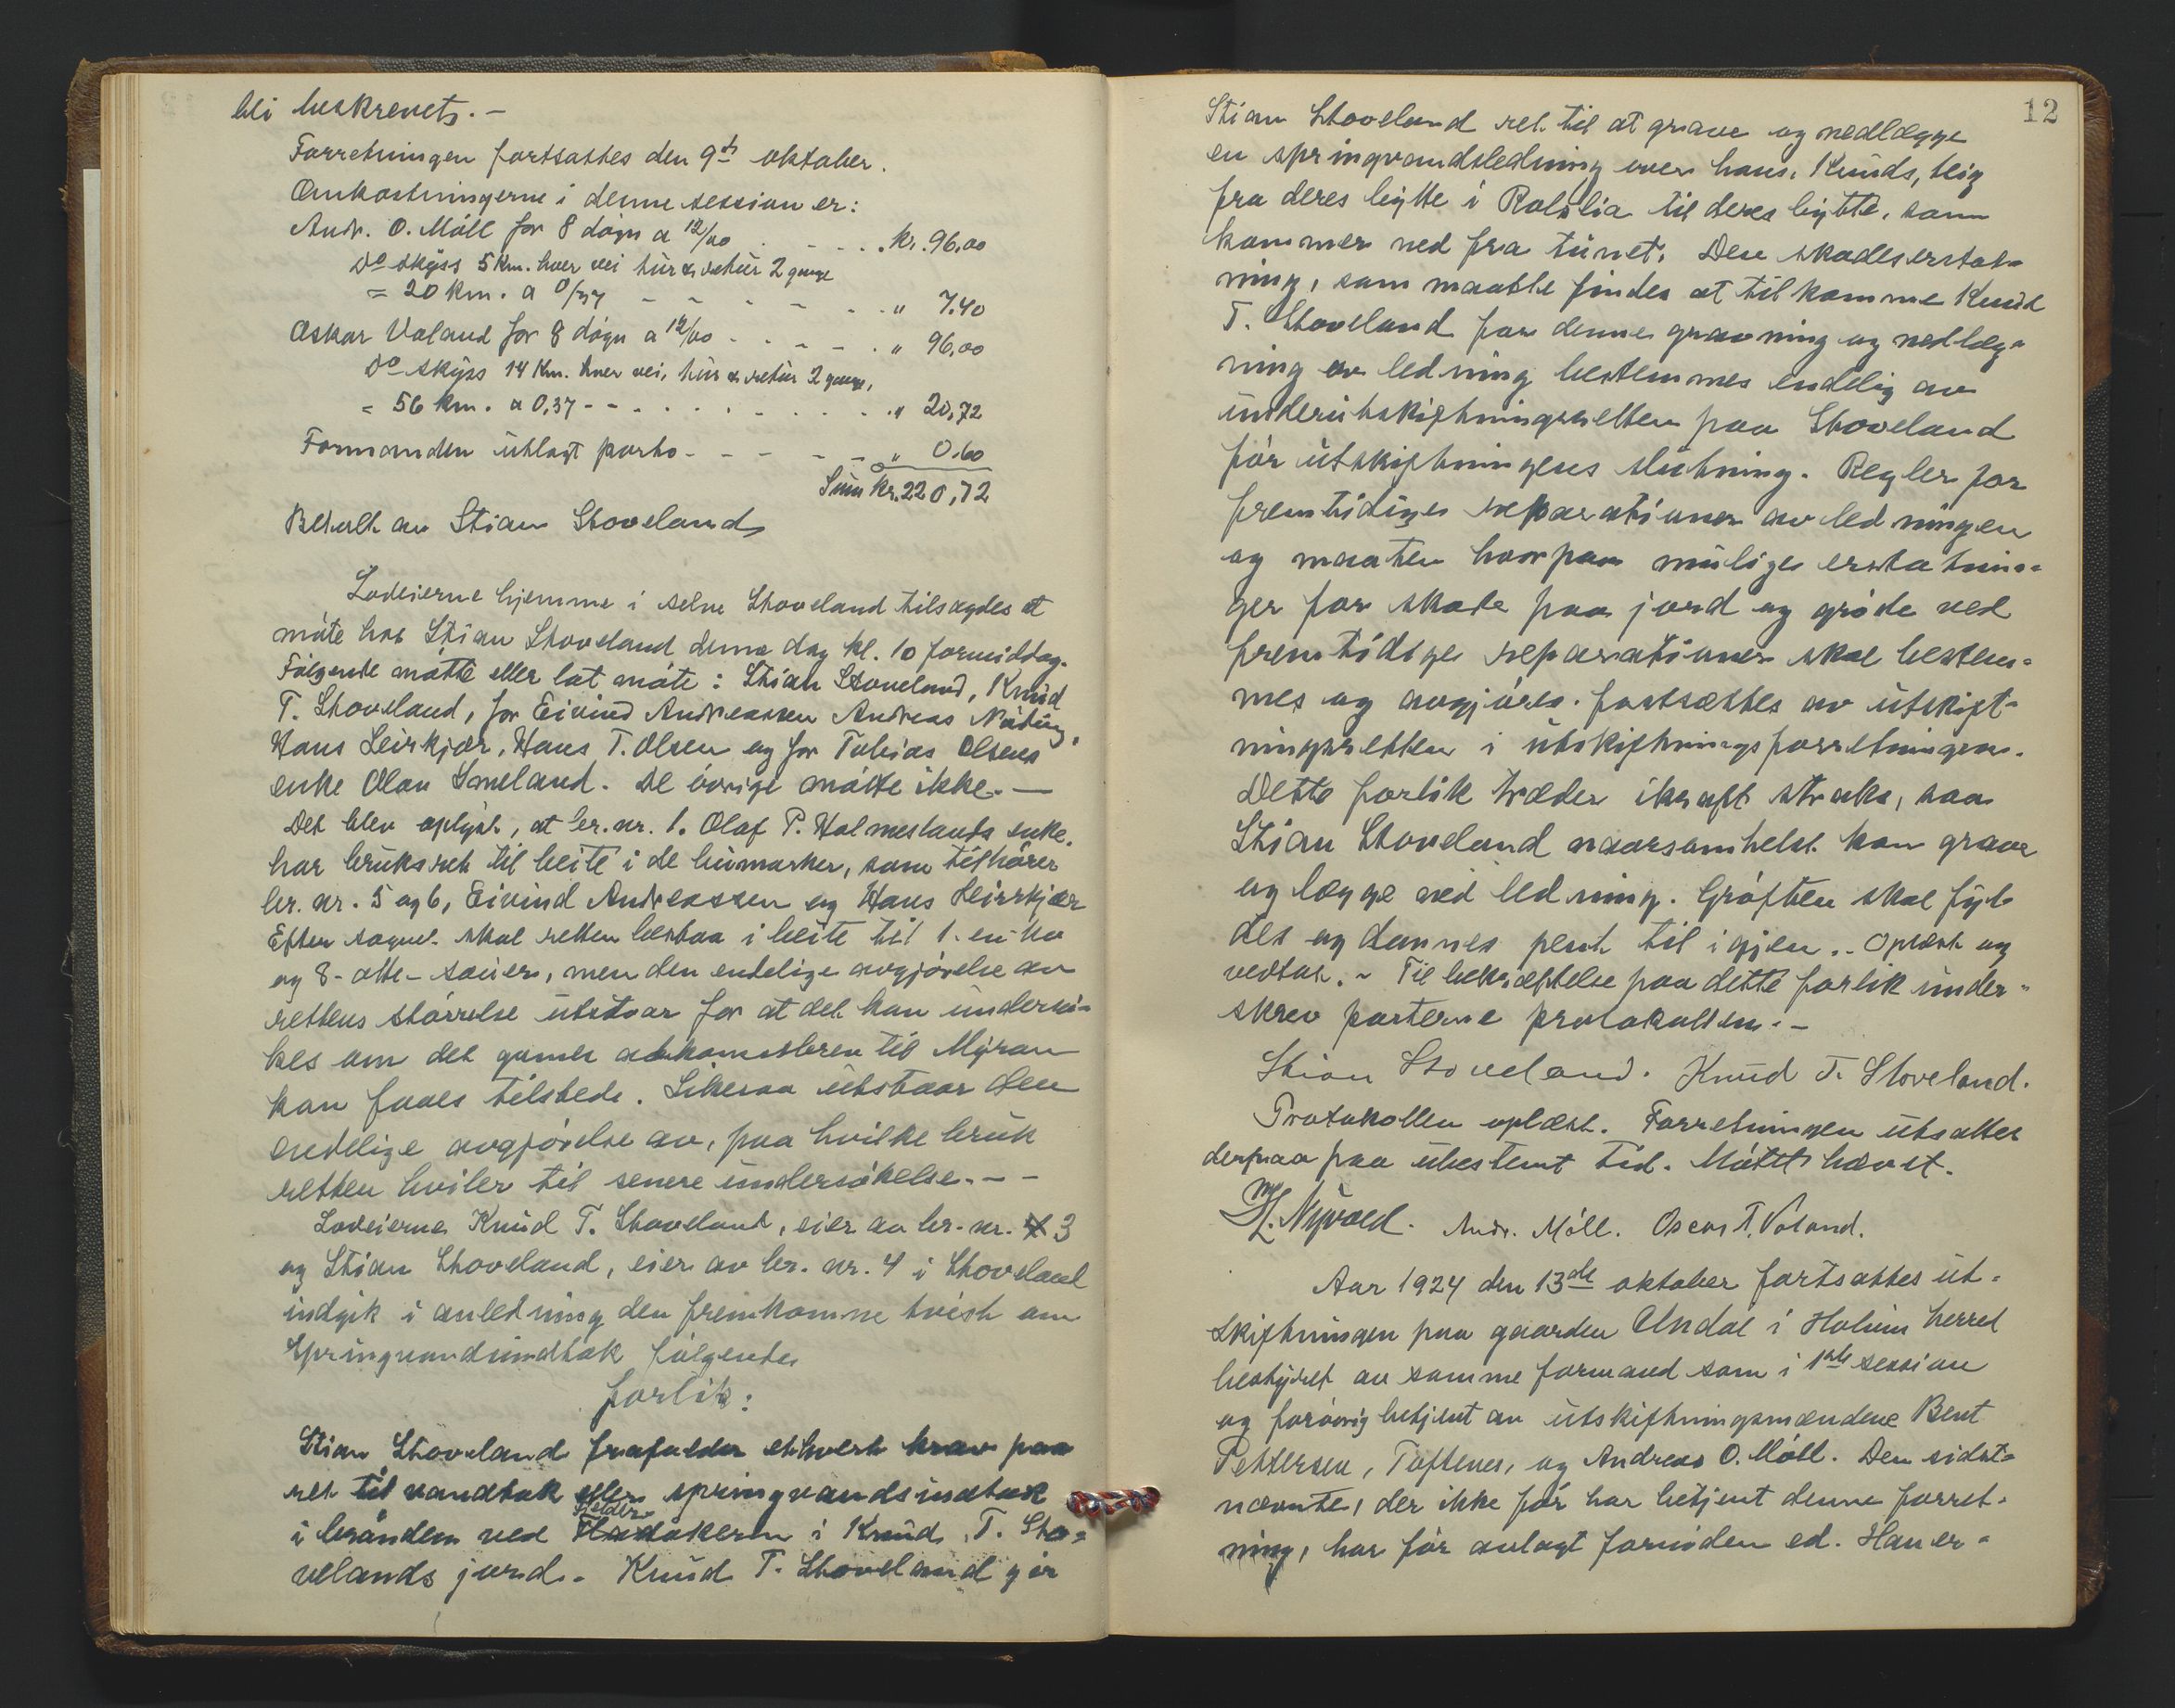 bli beskrevet. -
Forretningen fortsattes den 9de oktober.
Omkostningerne i denne session er:
Andr. O. Möll for 8 døgn a 12/00 - - - . kr. 96,00
Do skyss 5 km. hver vei tur & retur 2 gange
= 20 km. a 0/37 - - - - - . . " 7.40
Oskar Voland for 8 døgn a 12/00 - - - - . " 96,00
Do skyss 14 km. hver vei, tur & retur 2 gange,
= 56 km. a 0,37 - - - - - - - . " 20,72
Formanden utlagt porto - - - - - " 0.60
Sum kr. 220,72
Betalt av Stian Stoveland
Lodeierne hjemme i selve Stoveland tilsagdes at
møte hos Stian Stoveland denne dag kl. 10 formiddag.
Følgende møtte eller lot møte: Stian Stoveland, Knud
T. Stoveland, for Eivind Andreassen Andreas Nöding,
Hans Leirkjær, Hans T. Olsen og for Tobias Olsens
enke Olav Imeland. De øvrige møtte ikke. -
Det blev oplyst, at br. nr. 1. Olaf P. Holmeslands enke,
har bruksret til beite i de heimarker, som tilhører
br. nr. 5 og 6, Eivind Andreassen og Hans Leirkjær
Efter sagnet skal retten bestaa i beite til 1-en-ko
og 8-otte-sauer, men den endelige avgjørelse av
rettens størrelse utstaar for at det kan undersø-
kes om det gamle adkomstbrev til Myran
kan faaes tilstede. Likesaa utstaar den
endelige avgjørelse av, paa hvilke bruk
retten hviler til senere undersøkelse. - -
Lodeierne Knud T. Stoveland, eier av br. nr. 3
og Stian Stoveland, eier av br. nr. 4 i Stoveland
indgik i anledning den fremkomne tvist om
springvandsindtak følgende
forlik:
Stian Stoveland frafalder ethvert krav paa
ret til vandtak eller springvandsindtak
i brønden ved Heldeåkeren i Knud T. Sto-
velands jord. - Knud T. Stoveland gir
12
Stian Stoveland ret til at grave og nedlægge
en springvandsledning over hans, Knuds, teig
fra deres bytte i Rolslia til deres bytte, som
kommer ned fra tunet. Den skadeserstat-
ning, som maatte findes at tilkomme Knud
T. Stoveland for denne gravning og nedlæg-
ning av ledning bestemmes endelig av
underutskiftningsretten paa Stoveland
før utskiftningens slutning. Regler for
fremtidige reparationer av ledningen
og maaten hvorpaa mulige erstatnin-
ger for skade paa jord og grøde ved
fremtidige reparationer skal bestem-
mes og avgjøres, fastsættes av utskift-
ningsretten i utskiftningsforretningen.
Dette forlik træder ikraft straks, saa
Stian Stoveland naarsomhelst kan grave
og lægge ned ledning. Grøften skal fyl-
des og dannes pent til igjen. - Oplæst og
vedtat. - Til bekræftelse paa dette forlik under-
skrev parterne protokollen. -
Stian Stoveland. Knud T. Stoveland.
Protokollen oplæst. Forretningen utsattes
derpaa paa ubestemt tid. Møtet hævet.
Nyvold. Andr. Möll. Oscar T. Voland.
Aar 1924 den 13de oktober fortsattes ut-
skiftningen paa gaarden Undal i Holum herred
bestyret av samme formand som i 1ste session
og forøvrig betjent av utskiftningsmændene Bent
Pettersen, Toftenes, og Andreas O. Möll. Den sidst-
nævnte, der ikke før har betjent denne forret-
ning, har før avlagt fornøden ed. Han er-